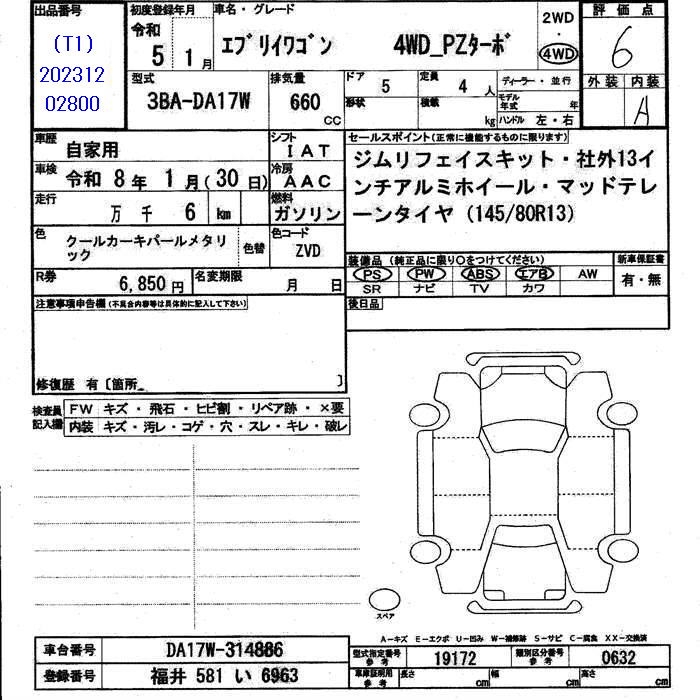 出品番号 初度登録年月 車名・グレード 2WD・4WD 評価点
(T1)
202312
02800
令和 5 1月 エブリイワゴン 4WD_PZターボ 6
型式 排気量 ドア 5 定員 4人 ディーラー・並行 外装 内装
3BA-DA17W 660 CC 形状 積載 kg モデル年式 年 A
ハンドル 左・右
車歴 自家用 シフト IAT セールスポイント(正常に機能するものに限ります)
車検 令和 8年 1月(30日) 冷房 AAC ジムリフェイスキット・社外13イ
走行 万 千 6 km 燃料 ガソリン ンチアルミホイール・マッドテレ
ーンタイヤ(145/80R13)
色 クールカーキパールメタリ
ック 色替 色コード ZVD
装備品(純正品に限り○をつけてください) 新車保証書
R券 6,850円 名変期限 月 日 PS PW ABS エアB AW 有・無
SR ナビ TV カワ
注意事項申告欄(不具合内容等は具体的に記入して下さい) 後日品
修復歴 有〔箇所_ 〕
検査員記入欄 FW キズ・飛石・ヒビ割・リペア跡・×要
内装 キズ・汚レ・コゲ・穴・スレ・キレ・破レ
スペア
A-キズ E-エクボ U-凹み W-補修跡 S-サビ C-腐食 XX-交換済
車台番号 DA17W-314886 型式指定番号 参考 19172 類別区分番号 参考 0632
登録番号 福井 581 い 6963 車庫証明用 参考 長さ cm 幅 cm 高さ cm